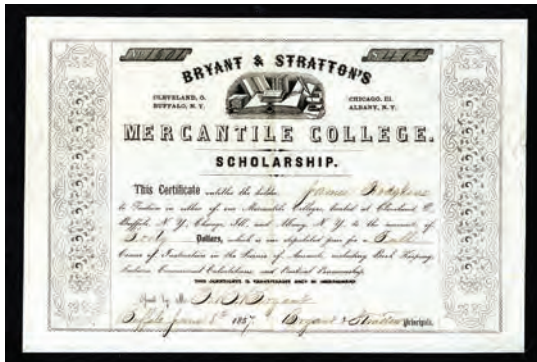 BRYANT & STRATTON'S
CLEVELAND, O. CHICAGO, Ill.
BUFFALO, N. Y. ALBANY, N. Y.
MERCANTILE COLLEGE.
SCHOLARSHIP.
This Certificate entitles the holder James
to Tuition in either of our Mercantile Colleges, located at Cleveland O,
Buffalo, N. Y., Chicago, Ill, and Albany, N. Y. to the amount of
Forty Dollars, which is our stipulated price for a Full
Course of Instruction in the Science of Accounts, including Book Keeping,
Lectures, Commercial Calculations, and Practical Penmanship.
THIS CERTIFICATE IS TRANSFERABLE ONLY BY INDORSEMENT
by Mr. Bryant
Buffalo June 8th 1857. Bryant & Stratton Principals.